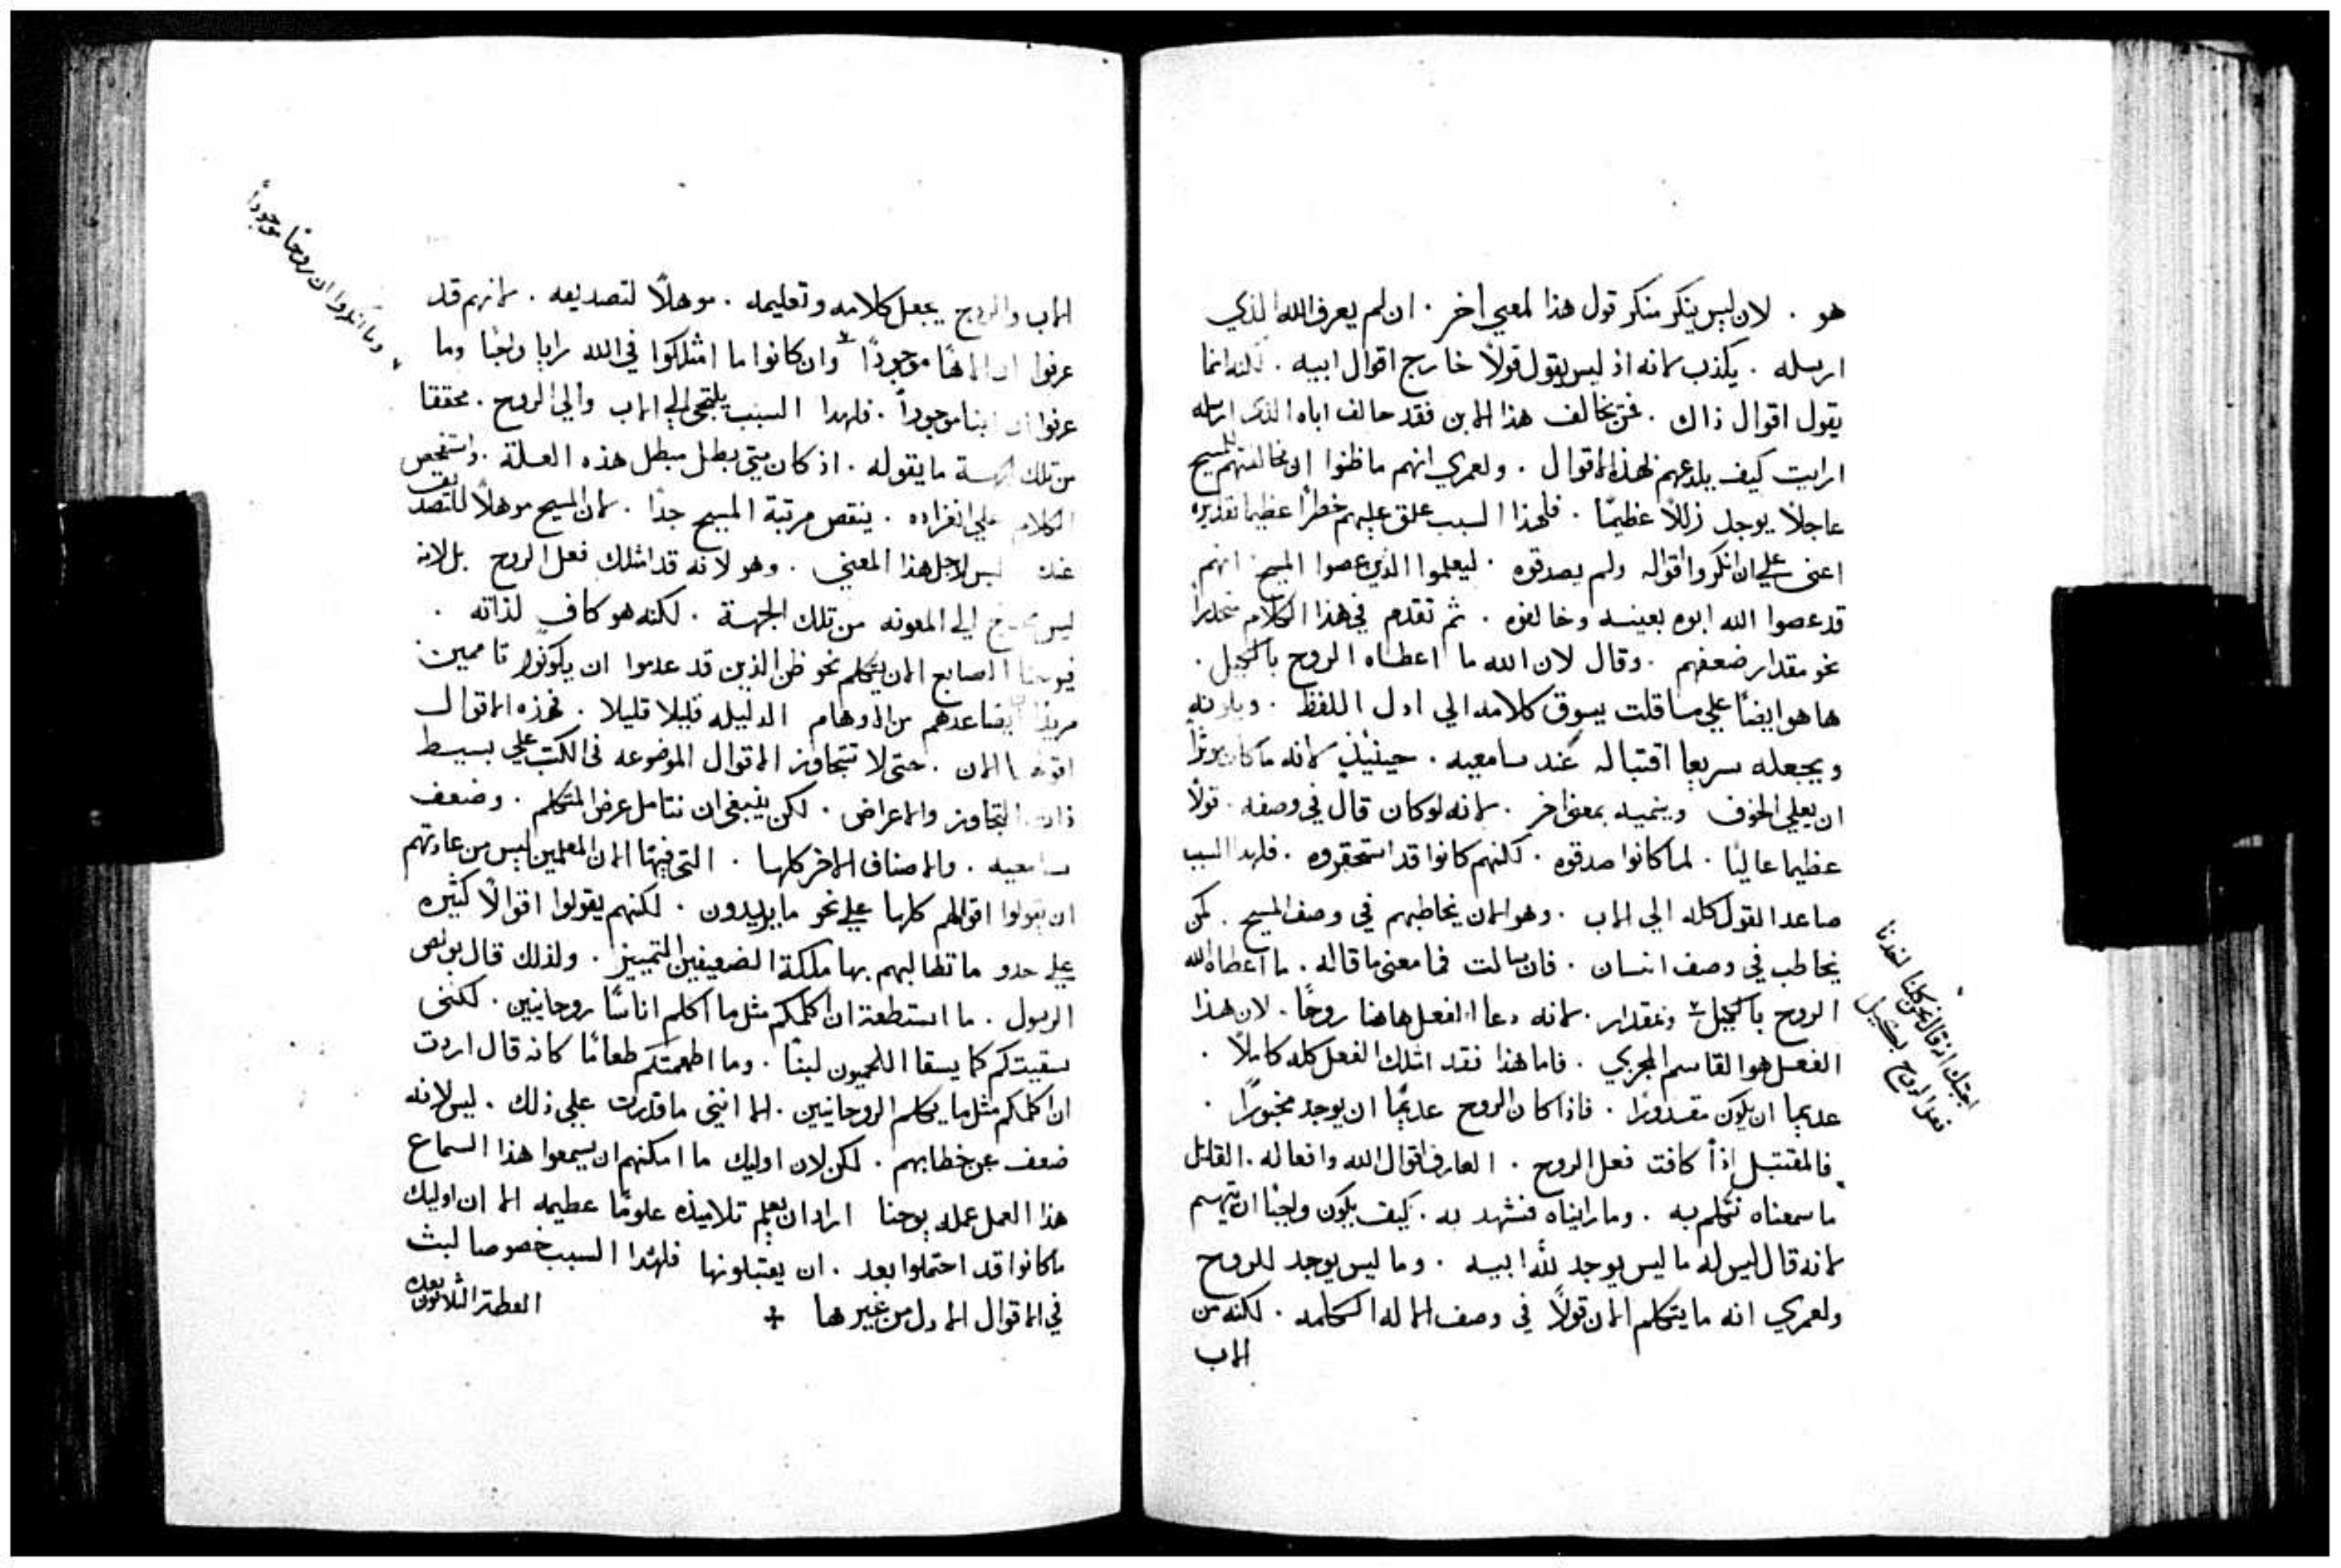 هو . لان ليس ينكر منكر قول هذا لمعني اخر . ان لم يعرف الله الذي
ارسله . يكذب لانه اذ ليس يقول قولاً خارج اقوال ابيه . لكنه انما
يقول اقوال ذاك . فمن يخالف هذا الابن فقد خالف اباه الذي ارسله
ارايت كيف يلدعهم بهذه الاقوال . ولعمري انهم ما ظنوا ان مخالفتهم للمسيح
عاجلاً يوجد زللاً عظيمًا . فلهذا السبب علق عليهم خطراً عظيما تقديره
اعني علي ان انكروا اقواله ولم يصدقوه . ليعلموا الذين عصوا المسيح انهم
قد عصوا الله ابوه بعينه وخالفوه . ثم تقدم في هذا الكلام متحدراً
نحو مقدار ضعفهم . وقال لان الله ما اعطاه الروح بالكيل .
ها هو ايضًا علي ما قلت يسوق كلامه الي ادل اللفظ .
ويجعله سريعا اقتباله عند سامعيه . حينيذٍ لانه ما كان يوثراً
ان يعلي الخوف وينميه بمعني اخر . لانه لو كان قال في وصفه . قولاً
عظيما عاليًا . لما كانوا صدقوه . لكنهم كانوا قد استحقروه . فلهدا السبب
صاعد القول كله الي الاب . وهو الان يخاطبهم في وصف المسيح . كمن
يخاطب في وصف انسان . فان سالت فما معني ما قاله . ما اعطاه الله
الروح بالكيل وبمقدار . لانه دعا الفعل هاهنا روحًا . لان هذا
الفعل هو القاسم المجري . فاما هذا فقد امتلك الفعل كله كاملاً .
عديما ان يكون مقدورًا . فاذا كان الروح عديمًا ان يوجد مخبورًا .
فالمقتبل اذاً كافت فعل الروح . العارف اقوال الله وافعاله . القايل
ما سمعناه نتكلم به . وما رايناه فنشهد به . كيف يكون واجبًا ان يتهم
لانه قال ليس له ما ليس يوجد لله ابيه . وما ليس يوجد للروح
ولعمري انه ما يتكلم الان قولاً في وصف الاله الكلمه . لكنه من
الاب
اجبتك اذ قال نحن كلنا اخذنا
فعل الروح بكيل
الاب والروح يجعل كلامه وتعليمه . موهلاً لتصديقه . لانهم قد
عرفوا ان الاهًا موجودًا وان كانوا ما امتلكوا في الله رايا واجبًا وما
عرفوا ان ابنا موجوداً . فلهدا السبب يلتجي الي الاب والي الروح . محققا
من تلك الجهة ما يقوله . اذ كان متي بطل مبطل هذه العلة . واستفحص
الكلام علي انفراده . ينقص مرتبة المسيح جدًا . لان المسيح موهلاً للتصديق
عند ليس لاجل هذا المعني . وهو لانه قد امتلك فعل الروح بل لانه
ليس محتاج الي المعونه من تلك الجهة . لكنه هو كافٍ لذاته .
فيوحنا الصابع الان يتكلم نحو ظن الذين قد عدموا ان يكونوا تاممين
مريدًا ان يصاعدهم من الاوهام الدليله قليلا قليلا . فهذه الاقوال
اقولها الان . حتي لا تتجاوز الاقوال الموضوعه في الكتب علي بسيط
ذات التجاوز والاعراض . لكن ينبغي ان نتامل عرض المتكلم . وضعف
سامعيه . والاصناف الاخر كلها . التي فيها الان المعلمين ليس من عادتهم
ان يقولوا اقوالهم كلها علي نحو ما يريدون . لكنهم يقولوا اقوالاً كثيره
علي حدو ما تطالبهم بها ملكة الضعيفين التمييز . ولذلك قال بولص
الرسول . ما استطعت ان اكلمكم مثل ما اكلم اناسًا روحانيين . لكنني
سقيتكم كما يسقا اللحميون لبنًا . وما اطعمتكم طعامًا كانه قال اردت
ان اكلمكم مثل ما يكلم الروحانيين . الا انني ما قدرت علي ذلك . ليس لانه
ضعف عن خطابهم . لكن لان اوليك ما امكنهم ان يسمعوا هذا السماع
هذا العمل عمله يوحنا اراد ان يعلم تلاميذه علومًا عظيمه الا ان اوليك
ما كانوا قد احتملوا بعد . ان يقتبلونها فلهدا السبب خصوصا لبث
في الاقوال الادل من غيرها + العظة الثلاثون بعده
وما انكروا ان روحًا موجوداً